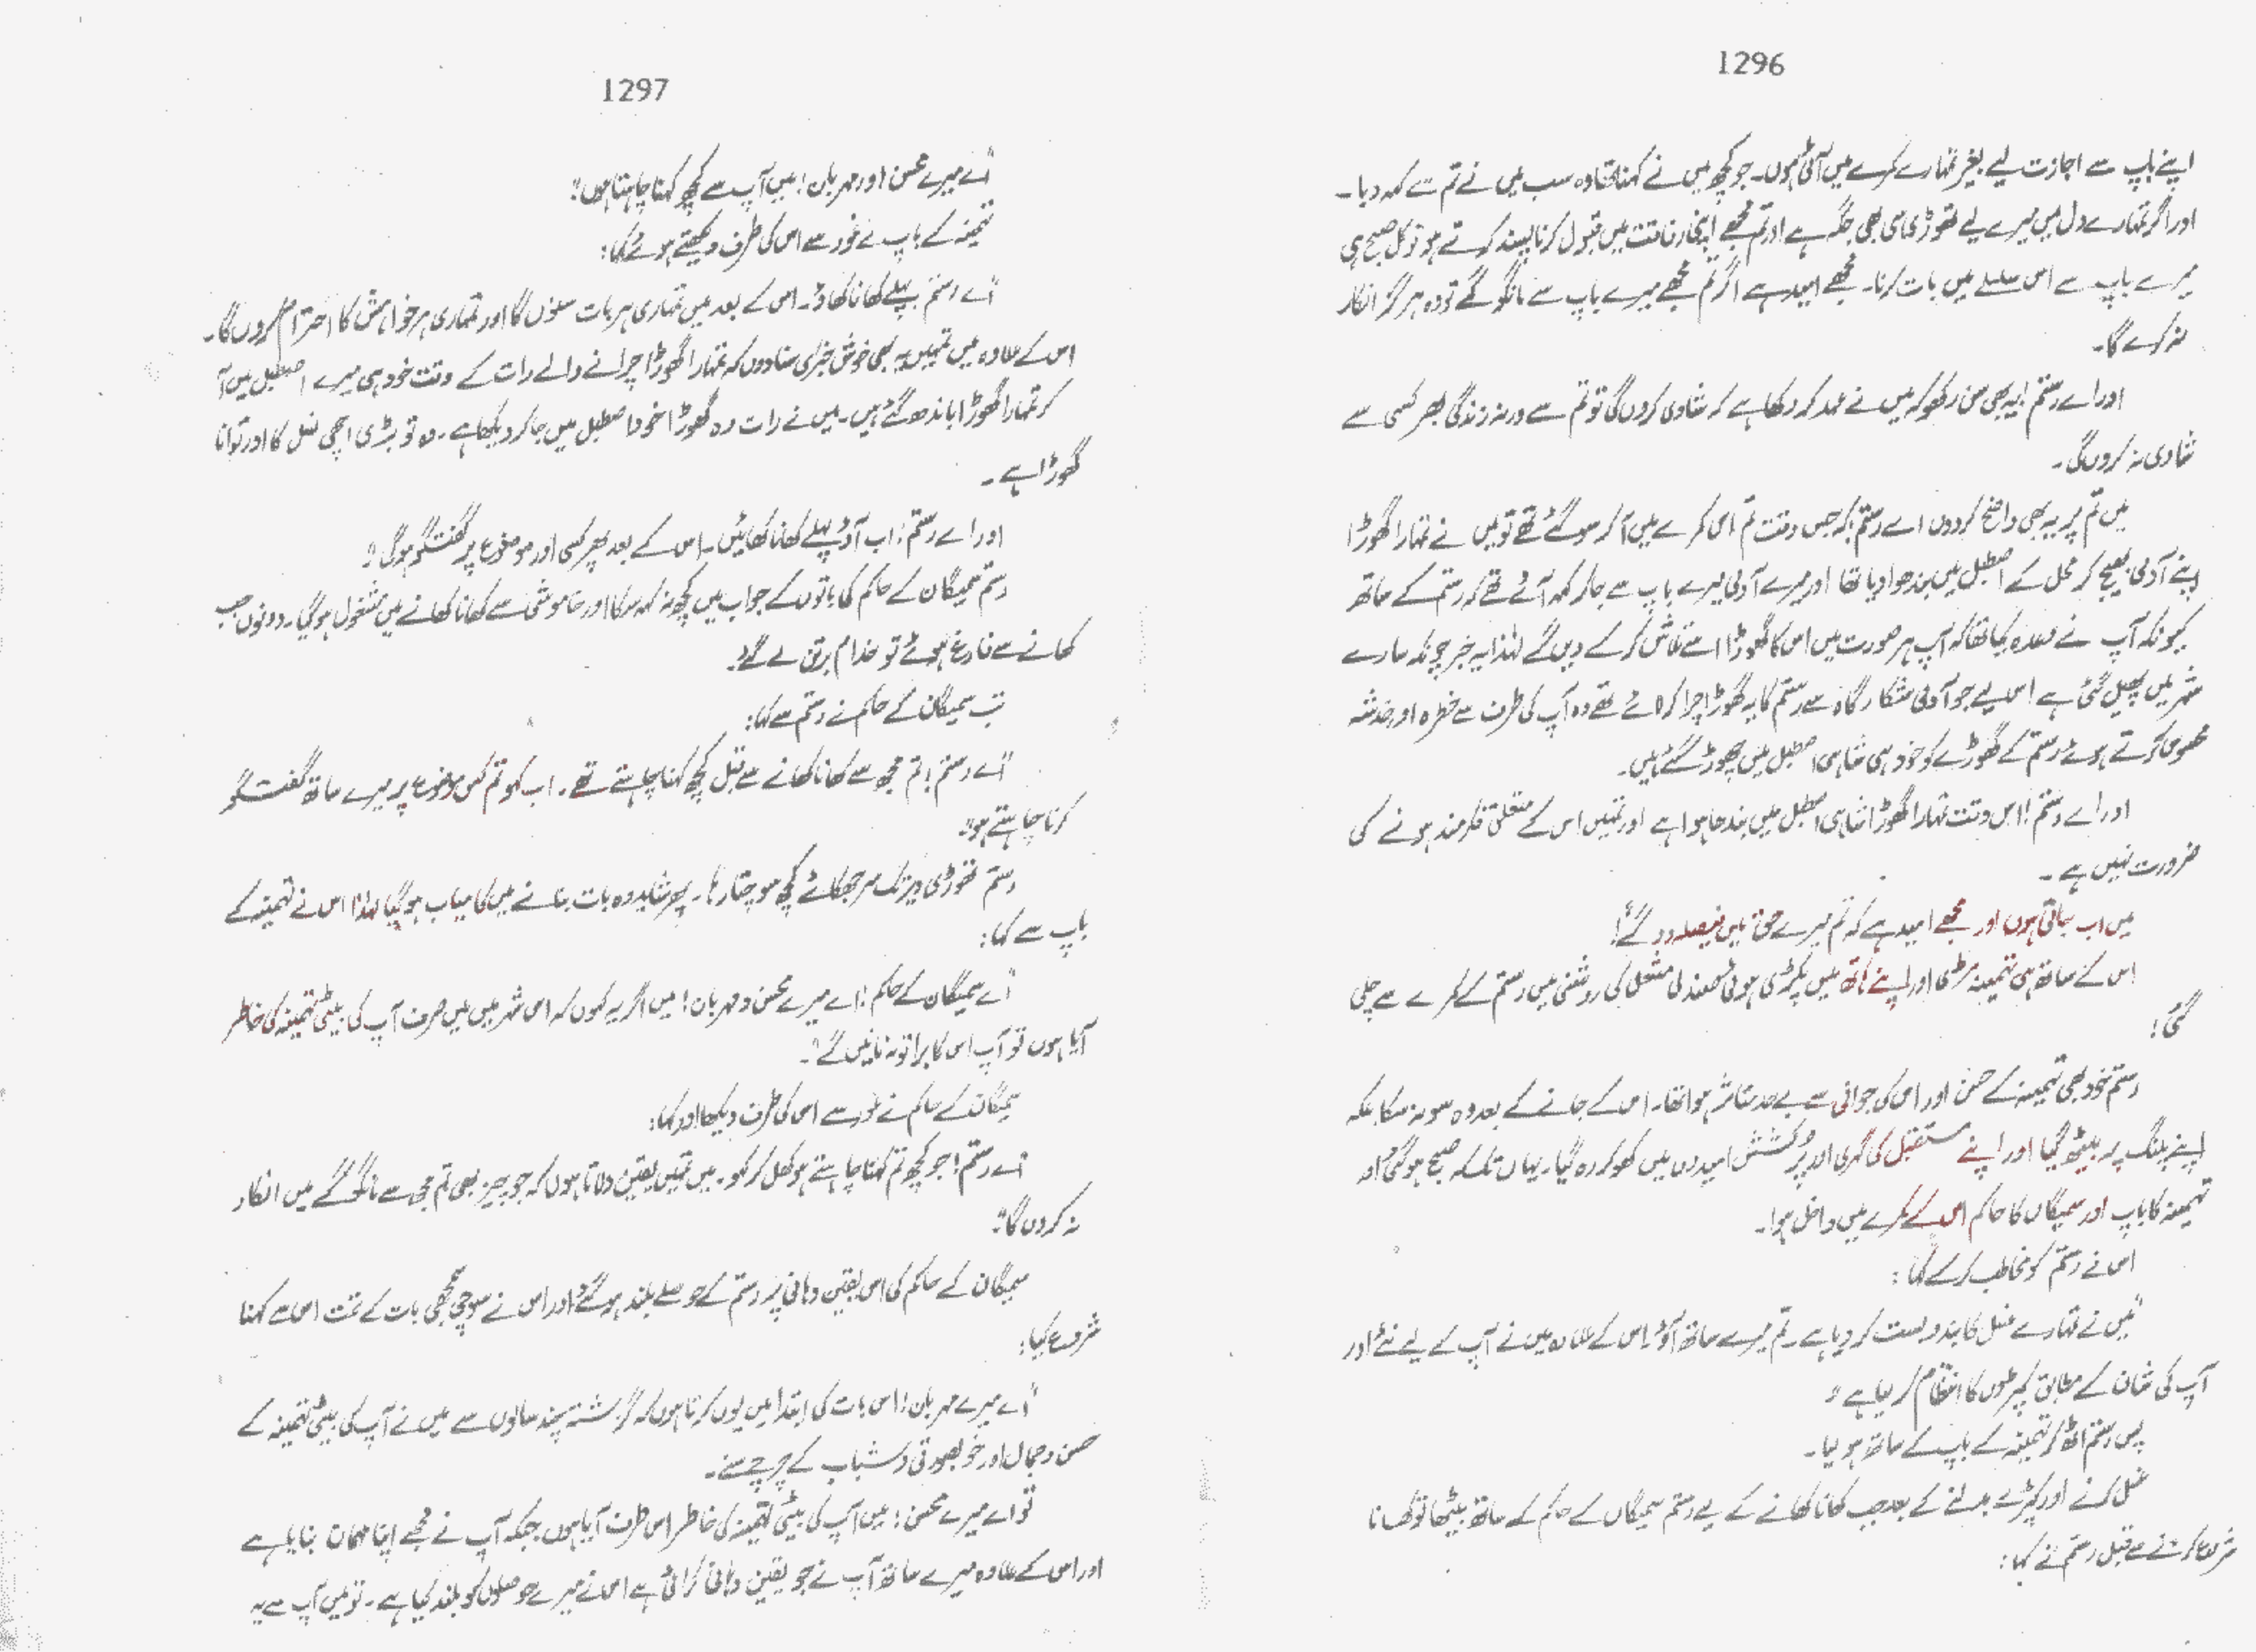 1296
اپنے باپ سے اجازت لیے بغیر تمہارے کمرے میں آئی ہوں۔ جو کچھ میں نے کہنا تھا وہ سب میں نے تم سے کہہ دیا۔
اور اگر تمہارے دل میں میرے لیے تھوڑی سی بھی جگہ ہے اور تم مجھے اپنی رفاقت میں قبول کرنا پسند کرتے ہو تو کل صبح ہی
میرے باپ سے اس سلسلے میں بات کرنا۔ مجھے امید ہے اگر تم مجھے میرے باپ سے مانگو گے تو وہ ہرگز انکار
نہ کرے گا۔
اور اے رستم! یہ بھی سن رکھو کہ میں نے عہد کر رکھا ہے کہ شادی کروں گی تو تم سے ورنہ زندگی بھر کسی سے
شادی نہ کروں گی۔
میں تم پر یہ بھی واضح کردوں اے رستم! کہ جس وقت تم اس کمرے میں آ کر سو گئے تھے تو میں نے تمہارا گھوڑا
اپنے آدمی بھیج کر محل کے اصطبل میں بندھوا دیا تھا اور میرے آدمی میرے باپ سے جا کر کہہ آئے تھے کہ رستم کے ساتھ
کیونکہ آپ نے وعدہ کیا تھا کہ آپ ہر صورت میں اس کا گھوڑا اسے تلاش کر کے دیں گے لہٰذا یہ خبر چونکہ سارے
شہر میں پھیل گئی ہے اس لیے جو آدمی شکار گاہ سے رستم کا یہ گھوڑا چرا کر لائے تھے وہ آپ کی طرف سے خطرہ اور خدشہ
محسوس کرتے ہوئے رستم کے گھوڑے کو خود ہی شاہی اصطبل میں چھوڑ گئے ہیں۔
اور اے رستم! اس وقت تمہارا گھوڑا شاہی اصطبل میں بندھا ہوا ہے اور تمہیں اس کے متعلق فکرمند ہونے کی
ضرورت نہیں ہے۔
میں اب جاتی ہوں اور مجھے امید ہے کہ تم میرے حق میں فیصلہ دو گے"!
اس کے ساتھ ہی تہمینہ مڑی اور اپنے ہاتھ میں پکڑی ہوئی صندلی مشعل کی روشنی میں رستم کے کمرے سے چلی
گئی!
رستم خود بھی تہمینہ کے حسن اور اس کی جوانی سے بے حد متاثر ہوا تھا۔ اس کے جانے کے بعد وہ سو نہ سکا بلکہ
اپنے پلنگ پر بیٹھ گیا اور اپنے مستقبل کی گہری اور پُرکشش امیدوں میں کھو کر رہ گیا۔ یہاں تک کہ صبح ہو گئی اور
تہمینہ کا باپ اور سمیگان کا حاکم اس کے کمرے میں داخل ہوا۔
اس نے رستم کو مخاطب کر کے کہا:
"میں نے تمہارے غسل کا بندوبست کر دیا ہے۔ تم میرے ساتھ آؤ۔ اس کے علاوہ میں نے آپ کے لیے نئے اور
آپ کی شان کے مطابق کپڑوں کا انتظام کر لیا ہے"
پس رستم اٹھ کر تہمینہ کے باپ کے ساتھ ہو لیا۔
غسل کرنے اور کپڑے بدلنے کے بعد جب کھانا کھانے کے لیے رستم سمیگان کے حاکم کے ساتھ بیٹھا تو کھانا
شروع کرنے سے قبل رستم نے کہا:
1297
"اے میرے محسن اور مہربان! میں آپ سے کچھ کہنا چاہتا ہوں"!
تہمینہ کے باپ نے غور سے اس کی طرف دیکھتے ہوئے کہا:
"اے رستم پہلے کھانا کھاؤ۔ اس کے بعد میں تمہاری ہر بات سنوں گا اور تمہاری ہر خواہش کا احترام کروں گا۔
اس کے علاوہ میں تمہیں یہ بھی خوش خبری سنا دوں کہ تمہارا گھوڑا چرانے والے رات کے وقت خود ہی میرے اصطبل میں آ
کر تمہارا گھوڑا باندھ گئے ہیں۔ میں نے رات وہ گھوڑا خود اصطبل میں جا کر دیکھا ہے۔ وہ تو بڑی اچھی نسل کا اور توانا
گھوڑا ہے۔
اور اے رستم! اب آؤ پہلے کھانا کھائیں۔ اس کے بعد پھر کسی اور موضوع پر گفتگو ہو گی"۔
رستم سمیگان کے حاکم کی باتوں کے جواب میں کچھ نہ کہہ سکا اور خاموشی سے کھانا کھانے میں مشغول ہو گیا۔ دونوں جب
کھانے سے فارغ ہوئے تو خدام برتن لے گئے۔
تب سمیگان کے حاکم نے رستم سے کہا:
"اے رستم! تم مجھ سے کھانا کھانے سے قبل کچھ کہنا چاہتے تھے۔ اب کہو تم کس موضوع پر میرے ساتھ گفتگو
کرنا چاہتے ہو"۔
رستم تھوڑی دیر تک سر جھکائے کچھ سوچتا رہا۔ پھر شاید وہ بات بنانے میں کامیاب ہو گیا لہٰذا اس نے تہمینہ کے
باپ سے کہا:
"اے سمیگان کے حاکم! اے میرے محسن و مہربان! میں اگر یہ کہوں کہ اس شہر میں میں صرف آپ کی بیٹی تہمینہ کی خاطر
آیا ہوں تو آپ اس کا برا تو نہ مانیں گے"۔
سمیگان کے حاکم نے غور سے اس کی طرف دیکھا اور کہا:
"اے رستم! جو کچھ تم کہنا چاہتے ہو کھل کر کہو۔ میں تمہیں یقین دلاتا ہوں کہ جو چیز بھی تم مجھ سے مانگو گے میں انکار
نہ کروں گا"۔
سمیگان کے حاکم کی اس یقین دہانی پر رستم کے حوصلے بلند ہو گئے اور اس نے سوچی سمجھی بات کے تحت اس سے کہنا
شروع کیا:
"اے میرے مہربان! اس بات کی ابتدا میں یوں کرتا ہوں کہ گزشتہ چند سالوں سے میں نے آپ کی بیٹی تہمینہ کے
حسن و جمال اور خوبصورتی و شباب کے چرچے سنے۔
تو اے میرے محسن! میں آپ کی بیٹی تہمینہ کی خاطر اس طرف آیا ہوں جبکہ آپ نے مجھے اپنا مہمان بنایا ہے
اور اس کے علاوہ میرے ساتھ آپ نے جو یقین دہانی کرائی ہے اس نے میرے حوصلوں کو بلند کیا ہے۔ تو میں آپ سے یہ